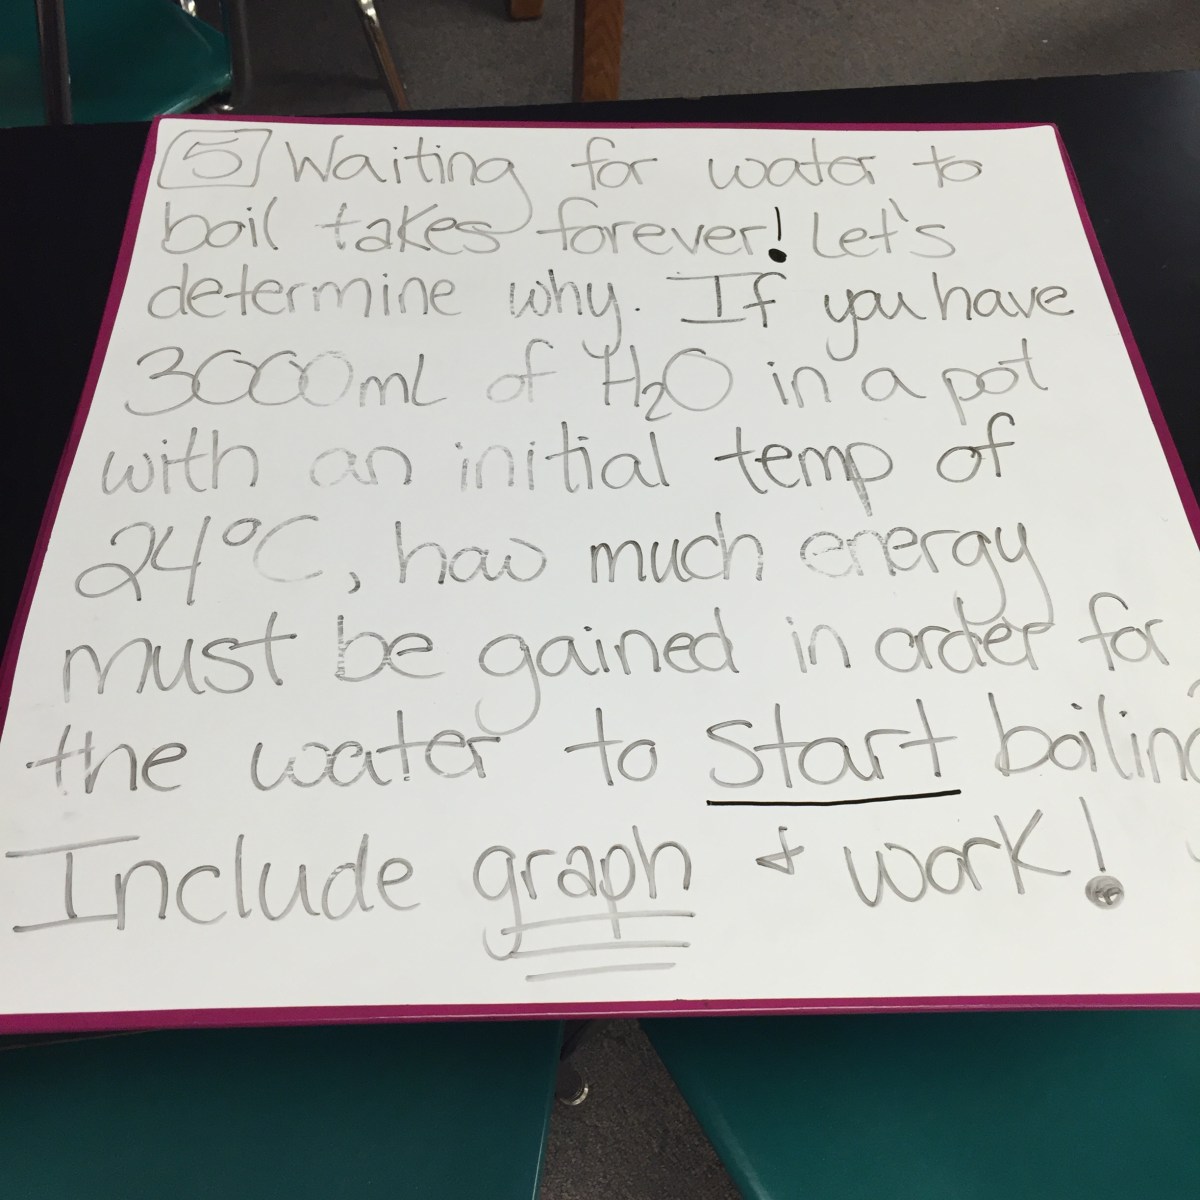 5 Waiting for water to
boil takes forever! Let's
determine why. If you have
3000mL of H₂O in a pot
with an initial temp of
24°C, how much energy
must be gained in order for
the water to start boiling?
Include graph & work!